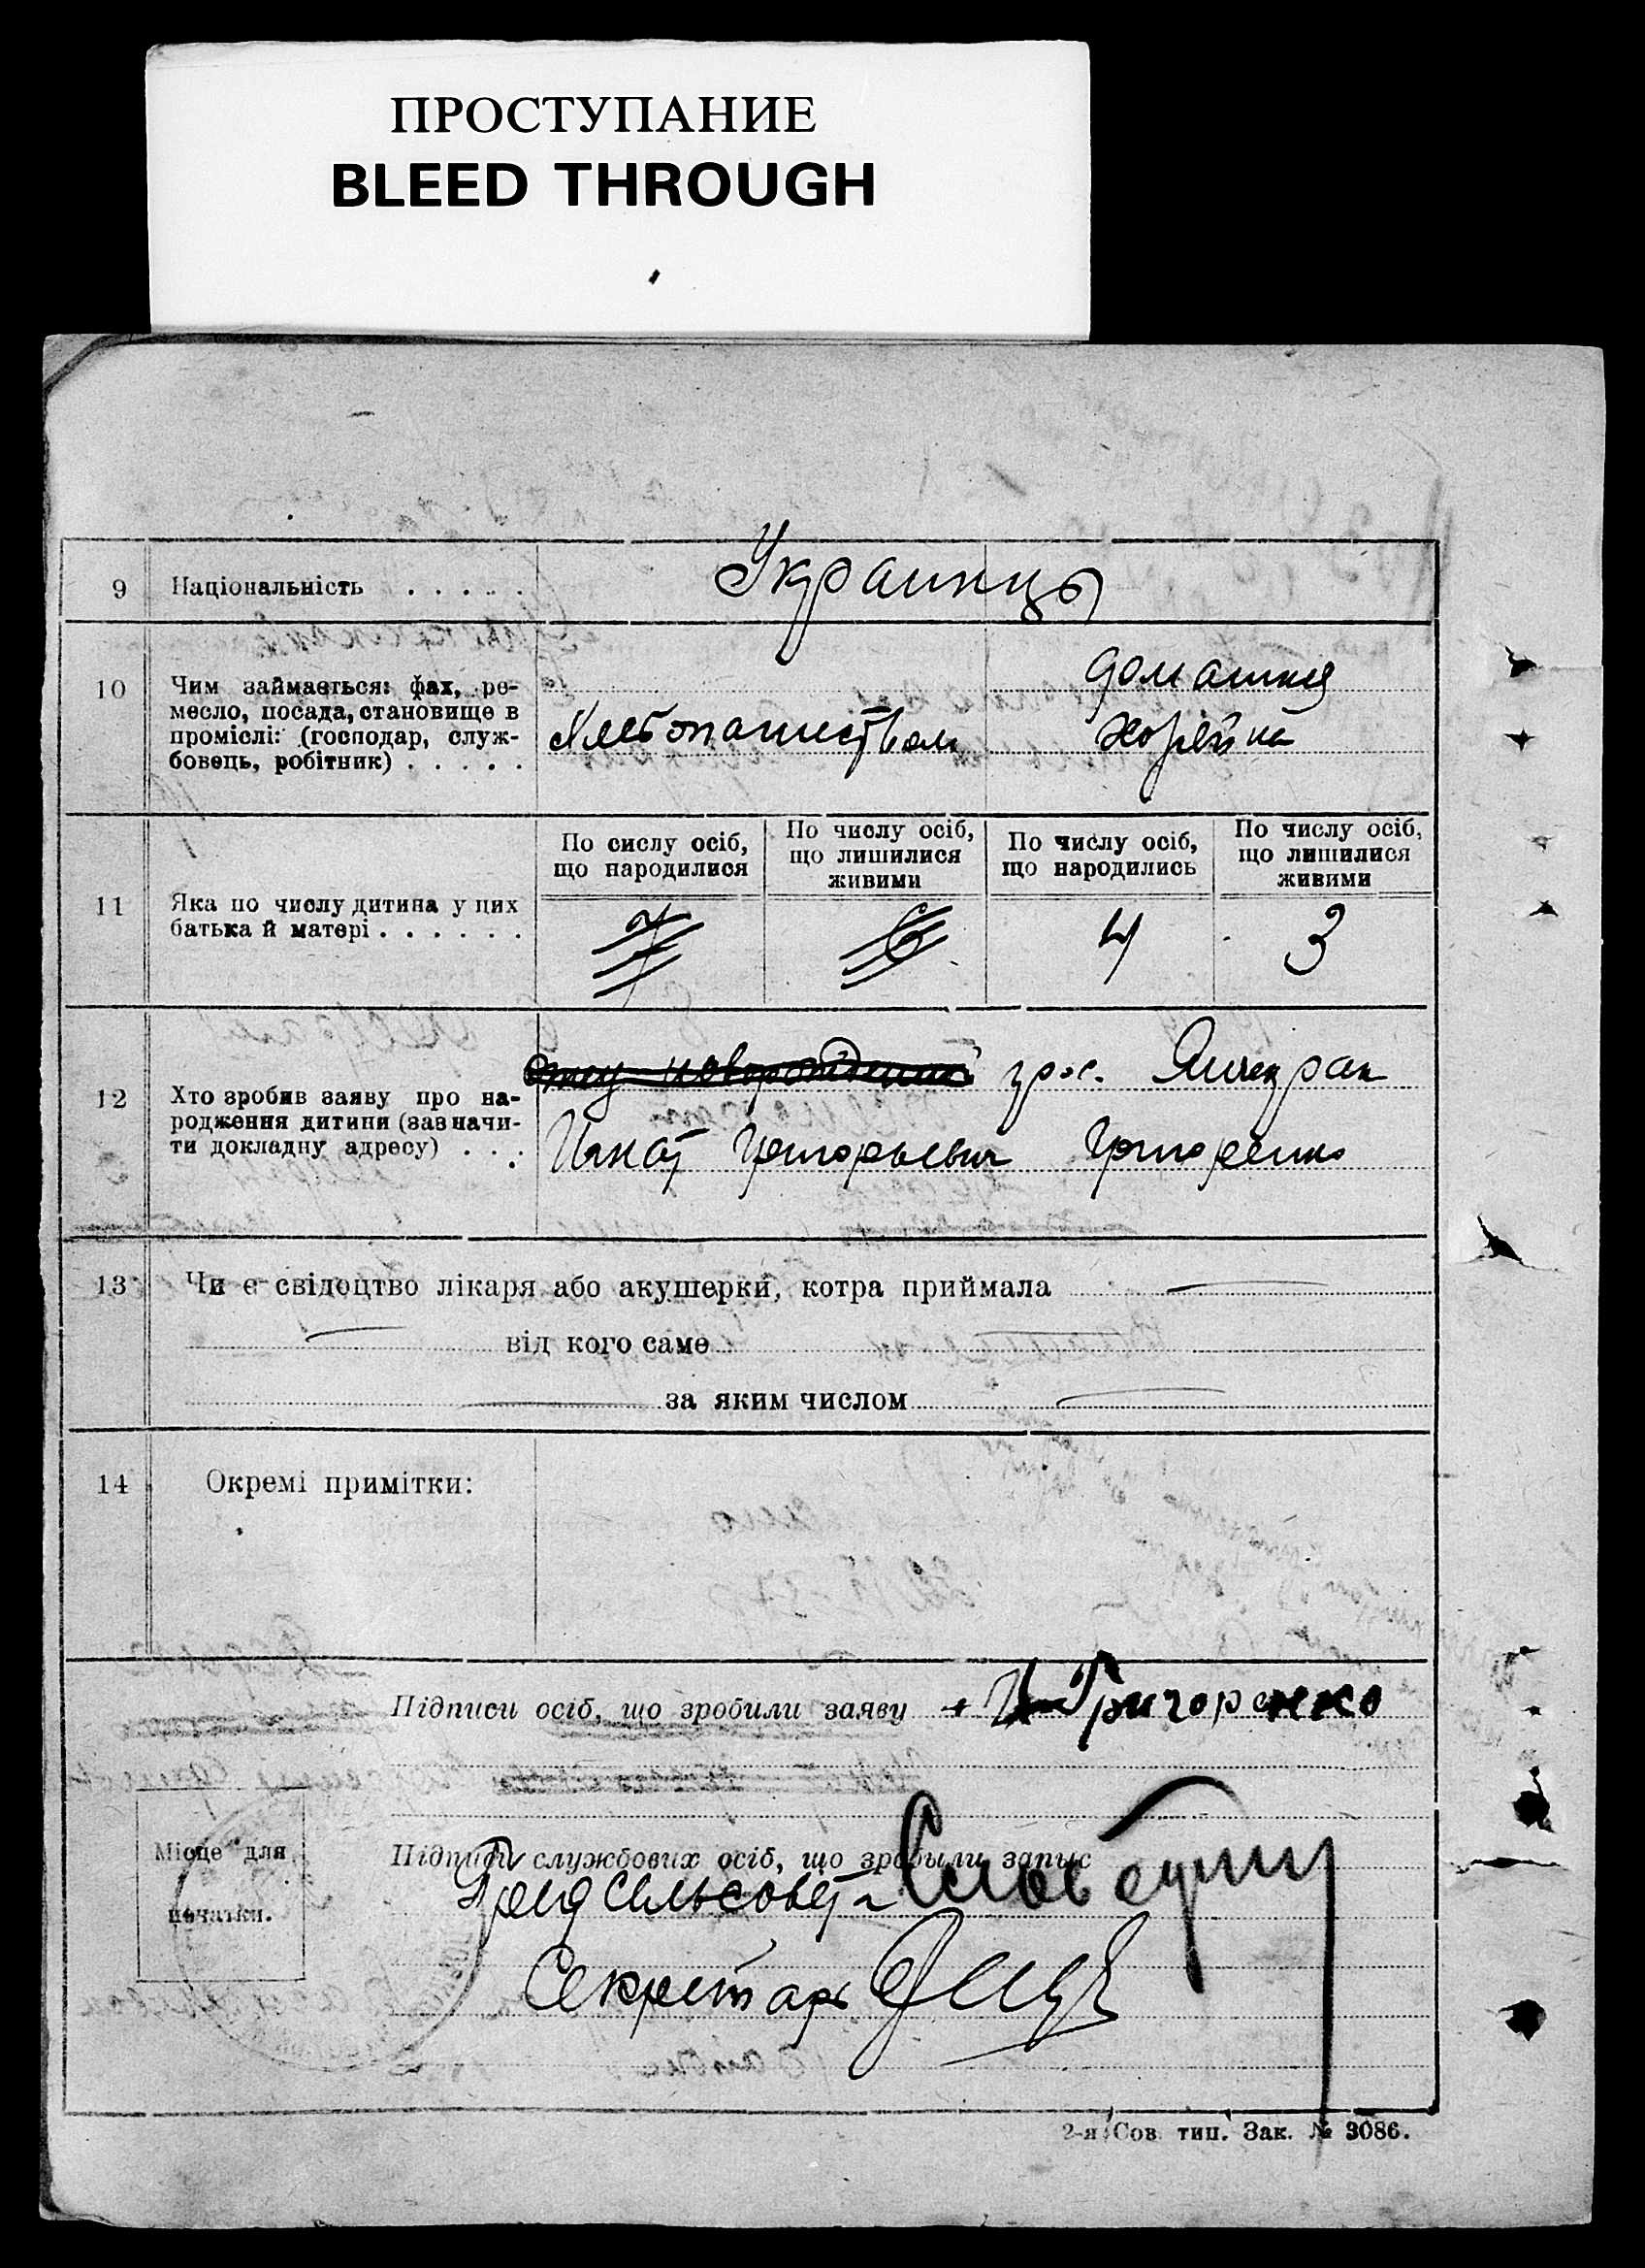 ПРОСТУПАНИЕ
BLEED THROUGH
9 Національність . . . . . Украинцы
10 Чим займається: фах, ре-
месло, посада, становище в
проміслі: (господар, служ-
бовець, робітник) . . . . .
Хлебопашеством
домашня
хозяйка
11 Яка по числу дитина у цих
батька й матері . . . . . .
По сислу осіб,
що народилися
По числу осіб,
що лишилися
живими
По числу осіб,
що народились
По числу осіб,
що лишилися
живими
7 6 4 3
12 Хто зробив заяву про на-
родження дитини (зазначи-
ти докладну адресу) . . .
гр-н. Янчекрак
Игнат Григорьевич Григоренко
13 Чи є свідоцтво лікаря або акушерки, котра приймала
від кого саме
за яким числом
14 Окремі примітки:
Підписи осіб, що зробили заяву + И Григоренко
Місце для
печатки.
Підписи службових осіб, що зробыли запыс
Пред сельсовета
Секретарь
2-я Сов. тип. Зак. № 3086.